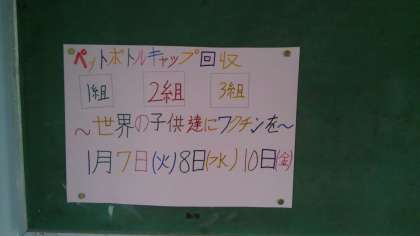 ペットボトルキャップ回収
1組 2組 3組
～世界の子供達にワクチンを～
1月7日(火)8日(水)10日(金)